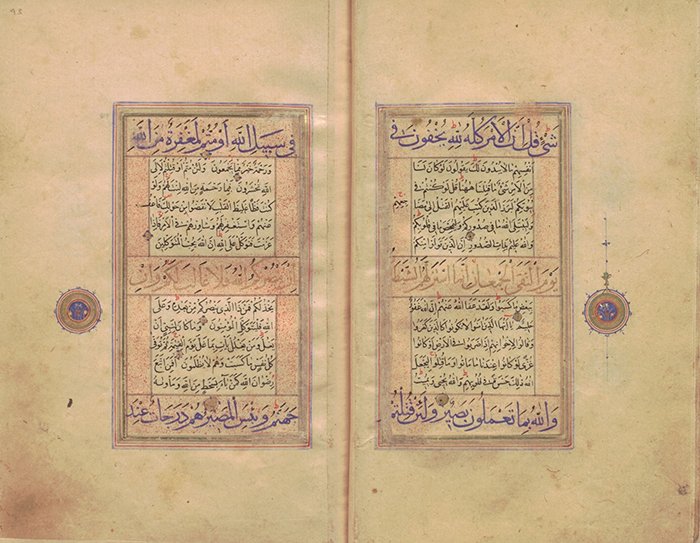 شيء قل ان الامر كله لله يخفون في
انفسهم ما لا يبدون لك يقولون لو كان لنا
من الامر شيء ما قتلنا ههنا قل لو كنتم في
بيوتكم لبرز الذين كتب عليهم القتل الى مضا جعهم
وليبتلي الله ما في صدوركم وليمحص ما في قلوبكم
والله عليم بذات الصدور ان الذين تولوا منكم
يوم التقى الجمعان انما استزلهم الشيطان
ببعض ما كسبوا ولقد عفا الله عنهم ان الله غفور
حليم يا ايها الذين امنوا لا تكونوا كالذين كفروا
وقالوا لاخوانهم اذا ضربوا في الارض او كانوا
غزى لو كانوا عندنا ما ماتوا وما قتلوا ليجعل
الله ذلك حسرة في قلوبهم والله يحيي ويميت
والله بما تعملون بصير ولئن قتلتم
في سبيل الله او متم لمغفرة من الله
ورحمة خير مما يجمعون ولئن متم او قتلتم لالى
الله تحشرون فبما رحمة من الله لنت لهم ولو
كنت فظا غليظ القلب لانفضوا من حولك فاعف
عنهم واستغفر لهم وشاورهم في الامر فاذا
عزمت فتوكل على الله ان الله يحب المتوكلين
ان ينصركم الله فلا غالب لكم وان
يخذلكم فمن ذا الذي ينصركم من بعده وعلى
الله فليتوكل المؤمنون وما كان لنبي ان
يغل ومن يغلل يات بما غل يوم القيمة ثم توفى
كل نفس ما كسبت وهم لا يظلمون افمن اتبع
رضوان الله كمن باء بسخط من الله وماويه
جهنم وبئس المصير هم درجات عند